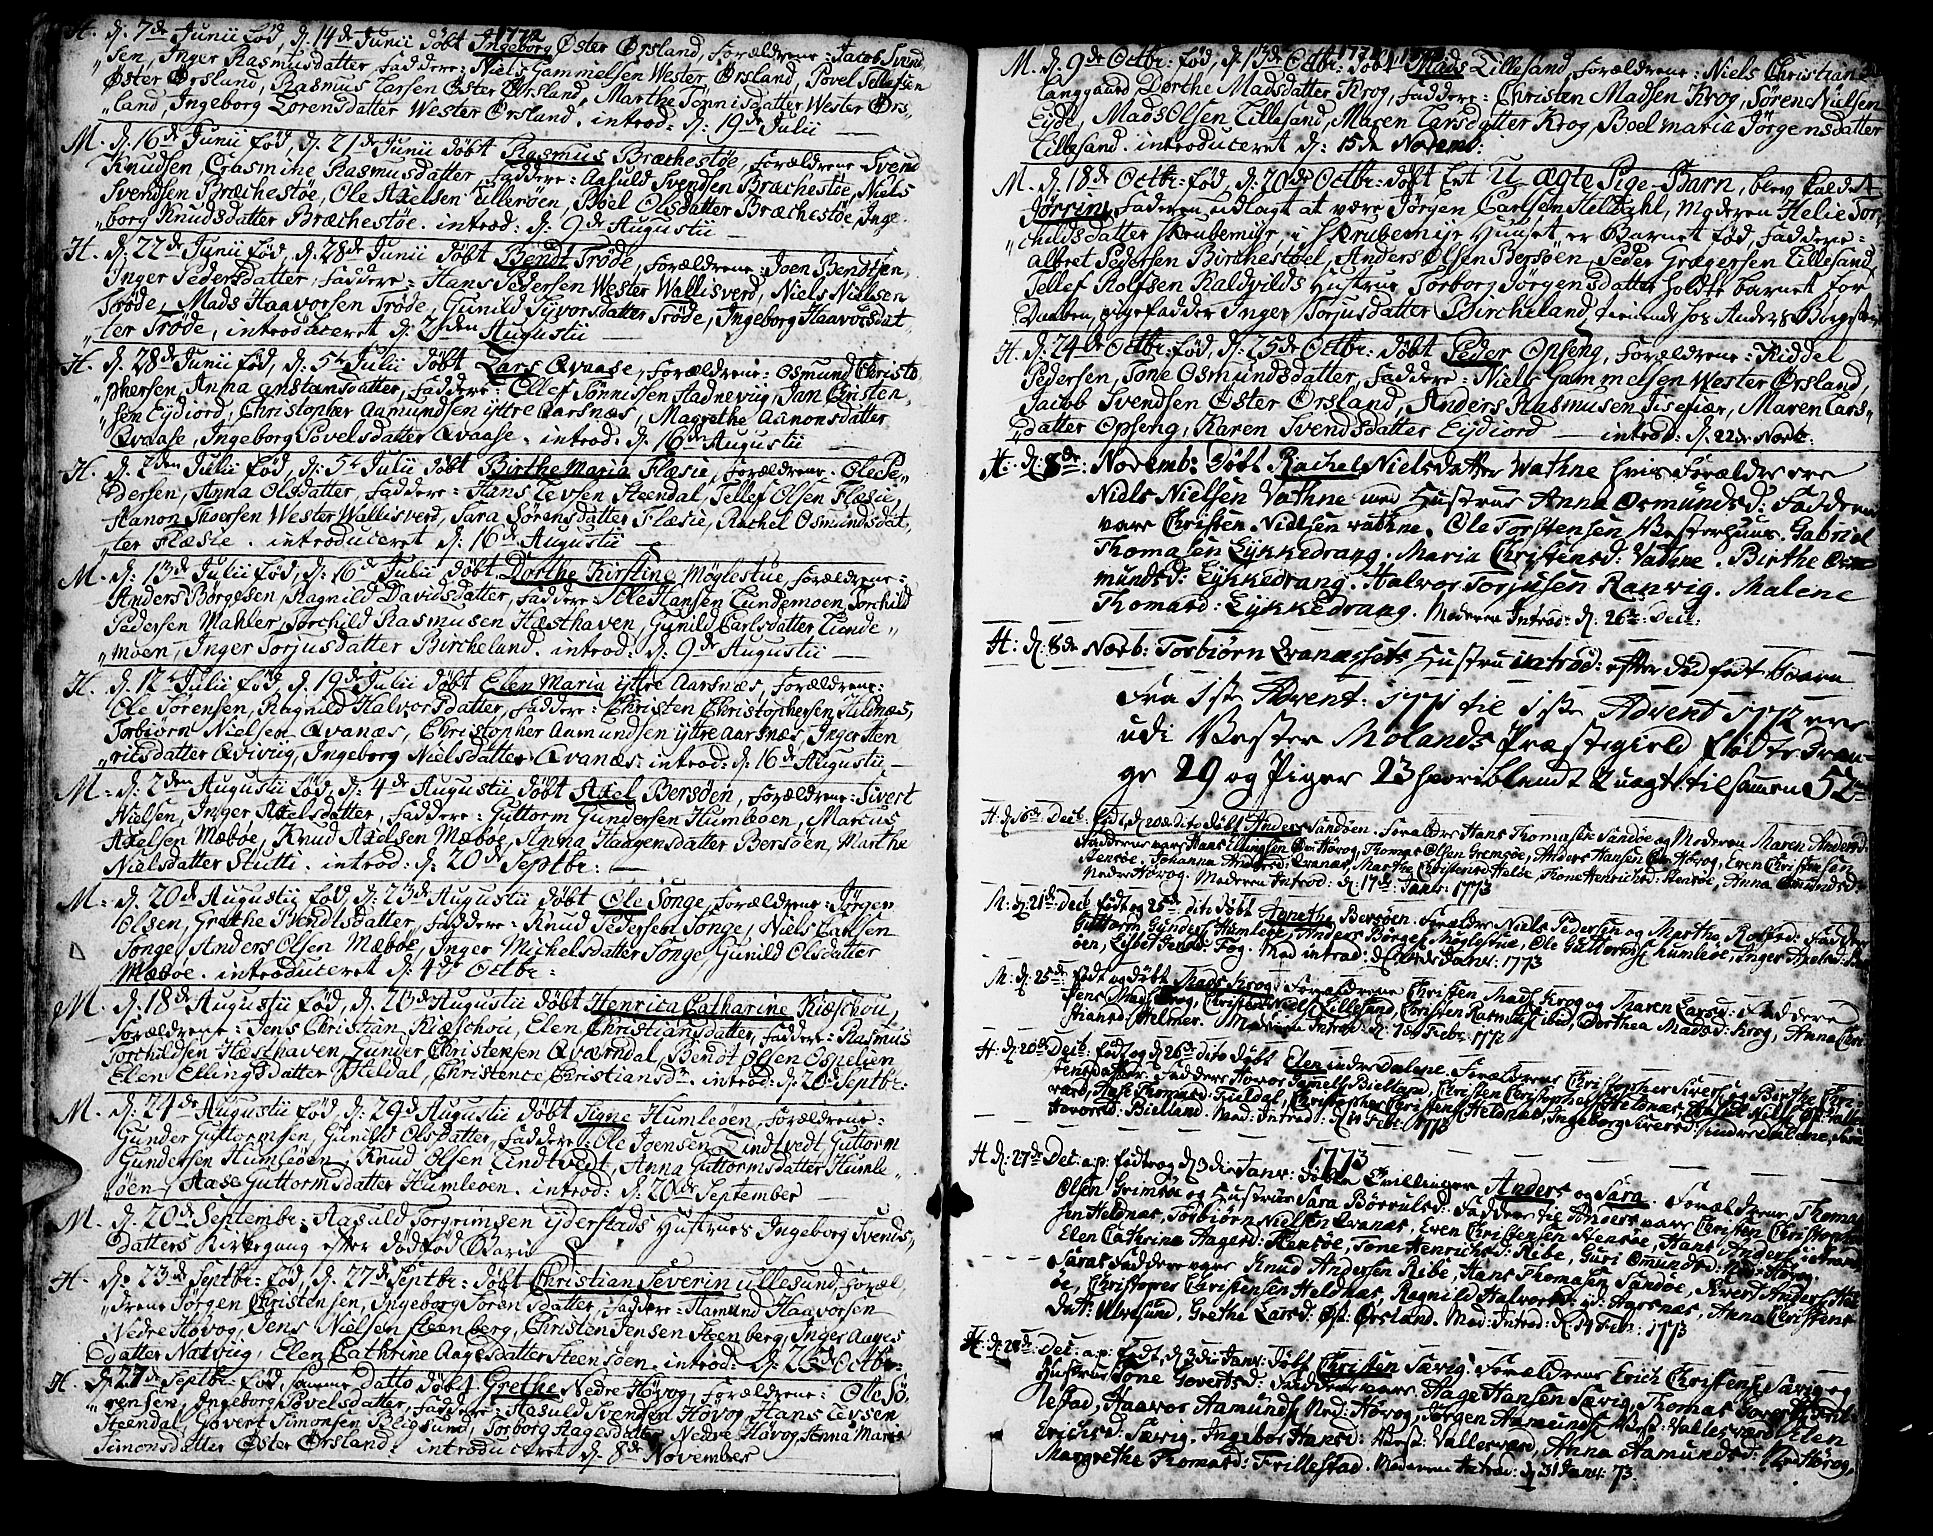 1772
H. d: 7de Junii fød, d. 14de Junii døbt Ingeborg Øster Ørsland, Forældrene: Jacob Svend,
"sen, Inger Rasmusdatter Faddere: Niels Gammelsen Wester Ørsland, Povel Tellefsen
Øster Ørsland, Rasmus Larsen Øster Ørsland, Marthe Tønnisdatter Wester Ørs,,
"land, Ingeborg Lorensdatter Wester Ørsland. introd: d: 19de Julii
M. d: 16de Junii fød, d: 21de Junii døbt Rasmus Bræchestøe, Forældrene Svend
Knudsen, Erasmine Rasmusdatter, Faddere: Aasuld Svendsen Bræchestøe, Niels
Svendsen Bræchestøe, Ole Axelsen Ullerøen, Boel Olsdatter Bræchestøe, Inge,,
"borg Knudsdatter Bræchestøe. introd: d: 9de Augustii
H. d: 22de Junii fød, d: 28de Junii døbt Bendt Trøde, Forældrene: Joen Bendtsen,
Inger Pedersdatter, Faddere: Hans Pedersen Wester Wallisverd, Niels Nielsen
Trøde, Mads Haavorsen Trøde, Gunild Syvorsdatter Trøde, Ingeborg Haavorsdat,,
"ter Trøde, introduceret d: 2den Augustii
H. d: 28de Junii fød, d: 5te Julii døbt Lars Qvaase, Forældrene: Osmund Christo
"phersen, Anna Constansdatter, Faddere: Ellef Tønnissen Hadnevig, Jan Christen,,
"sen Eydiord, Christopher Aamundsen yttre Aarsnæs, Magrethe Aanonsdatter
Qvaase, Ingeborg Povelsdatter Qvaase. introd: d: 16de Augustii
H. d: 2den Julii fød, d: 5te Julii døbt Birthe Maria Flæsie, Forældrene: Ole Pe,,
"dersen, Anna Olsdatter, Faddere: Hans Levsen Steendal, Tellef Olsen Flæsie,
Aanon Thoersen Wester Wallisverd, Sara Sørensdatter Flæsie, Rachel Osmundsdat,,
"ter Flæsie. introduceret d: 16de Augustii
M. d: 13de Julii fød, d: 16de Julii døbt Dorthe Kirstine Møglestue, Forældrene:
Anders Børgesen, Ragnild Davidsdatter, Faddere: Ole Hansen Lundemoen, Torchild
Pedersen Mahler, Torchild Rasmusen Hæsthaven, Gunild Carlsdatter Lunde,,
"moen, Inger Torjusdatter Bircheland. introd: d: 9de Augustii
H. d: 12te Julii fød, d. 19de Julii døbt Elen Maria yttre Aarsnæs, Forældrene:
Ole Sørensen, Ragnild Halvorsdatter, Faddere: Christen Christophersen Hildnæs,
Torbiørn Nielsen Qvanæs, Christopher Aamundsen yttre Aarsnæs, Inger Hen
"ricsdatter Qvivig, Ingeborg Nielsdatter Qvanæs: introd: d: 16de Augustii
M: d: 2den Augustii fød, d: 4de Augustii døbt Axel Bersøen, Forældrene: Sivert
Nielsen, Inger Axelsdatter, Faddere: Guttorm Gundersen Humleøen, Marcus
Axelsen Mæbøe, Knud Axelsen Mæbøe, Anna Haagensdatter Bersøen, Marthe
Nielsdatter Stutti. introd: d: 20de Septbr:
M: d: 20de Augustii fød, d: 23de Augustii døbt Ole Songe, Forældrene: Jørgen
Olsen, Grethe Bendtsdatter, Faddere: Knud Pedersen Songe, Niels Larsen
Songe, Anders Olsen Mæbøe, Inger Michelsdatter Songe, Gunild Olsdatter
Mæbøe. introduceret d: 4de Octbr:
M. d: 18de Augustii fød, d: 23de Augustii døbt Henrica Catharine Riøschou,
Forældrene: Jens Christian Riøschou, Elen Christiansdatter, Faddere: Rasmus
Torchildsen Hæsthaven, Gunder Christensen Qværndal, Bendt Olsen Ospelien
Elen Ellingsdatter Heldal, Christence Christiansd: introd: d: 20de Septbr:
M. d: 24de Augustii fød, d: 29de Augustii døbt Signe Humleøen, Forældrene:
Gunder Guttormsen, Gunild Olsdatter, Faddere: Ole Joensen Lindtvedt, Guttorm
Gundersen Humleøen, Knud Olsen Lindtvedt, Anna Guttormsdatter Humle,,
"øen, Aase Guttormsdatter Humleøen. introd: d: 20de September
M. d: 20de Septembr: Aasuld Torgrimsen yderstads Hustrues Ingeborg Svends,,
datters Kirkegang efter dødfød Barn
H. d: 23de Septbr: fød, d: 27de Septbr: døbt Christian Severin Ullesund, Foræl,,
"drene Jørgen Christensen, Ingeborg Sørensdatter, Faddere: Aamund Haavorsen
Nedre Høvog, Jens Nielsen Steenberg, Christen Jensen Steenberg, Inger Aages
datter Natvig, Elen Cathrine Aagesdatter Steensøen. introd: d: 26de Octbr:
H. d: 27de Septbr: fød, samme Datto døbt Grethe Nedre Høvog, Forældrene: Ole Sø,,
"rensen, Ingeborg Povelsdatter, Faddere: Aasuld Svendsen Høvog, Hans Levsen
Steendal, Govert Simonsen Bliegsund, Torborg Aagesdatter Nedre Høvog, Anna Marie
Simonsdatter Øster Ørsland. introduceret d: 8de November
1772
M. d: 9de Octbr: fød, d: 13de Octbr: døbt Mads Lillesand, Forældrene: Niels Christian
Langgaard Dorthe Madsdatter Krog, Faddere: Christen Madsen Krog, Søren Nielsen
Eyde, Mads Olsen Lillesand, Maren Larsdatter Krog, Boel Maria Jørgensdatter
Lillesand. introduceret d: 15de Novemb:
M. d: 18de Octbr: fød, d: 20de Octbr: døbt Eet U ægte Pige-Barn, blev kaldt
Jørgine, Faderen udlagt at være Jørgen Carlsen Heldahl, Moderen Helie Tor,,
"childsdatter Skrubemyr, i Skrubemyr Huuset er Barnet fød, Faddere:
Albret Pedersen Birchestøel, Anders Olsen Bersøen, Peder Grægersen Lillesand,
Tellef Rolfsen Kaldvilds Hustrue Torborg Jørgensdatter holdte barnet for
Daaben, pigefadder Inger Torjusdatter Bircheland, tienende hos Anders Børgesen
H. d: 24de Octbr: fød, d: 25de Octbr: døbt Peder Opseng, Forældrene: Kiddel
Pedersen, Tone Osmundsdatter, Faddere: Niels Gammelsen Wester Ørsland,
Jacob Svendsen Øster Ørsland, Anders Rasmusen Tisefiær, Maren Lars,,
"datter Opseng, Karen Svendsdatter Eydiord introd: d. 22de Novbr:
H. d. 8de: Novemb: døbt Rachel Nielsdatter Vathne hvis Forældre ere
Niels Nielsen Vathne med Hustrue Anna Osmundsd: Fadderne
vare Christen Nielsen Vathne. Ole Torstensen Vesterhuus. Gabriel
Thomasen Lykkedrang. Maria Christensd: Vathne. Birthe Os,,
mundsd: Lykkedrang. Halvor Torjusen Ranvig. Malene
Thomasd: Lykkedrang. Moderen Introd: d: 26de Decb:
H: d: 8de Novb: Torbiørn Qvanæssets Hustrue introd: efter Død født Barn
Fra 1ste Advent: 1771 til 1ste Advent 1772 ere
udi Vester Molands Præstegield fødte Dren,,
ge 29 og Piger 23 hvoriblandt 2 uægte til sammen 52
H. d: 16de Decb. født, d. 20de dito døbt Anders Sandøen. Forældre Hans Thomassen Sandøe og Moderen Maren Andersd:
Fadderne vare Hans Ellingsen Over Høvog, Thomas Olsen Gremsøe, Anders Hansen Over Høvog, Even Christensen
Stensøe. Johanna Andersd: Qvanæs, Marthe Christensd Heløe, Tone Henrichsd: Stensøe, Anna Omundsd:
Neder Høvog. Moderen Introd: d: 17de Janv: 1773
M: d: 21de Decb født og 25de dito døbt Agnethe Bersøen. Forældre Niels Pedersen og Martha Rolfsd: Faddere
Guttorm Gunders. Humleøe, Anders Børges. Møglestue, Ole Guttorms. Humleøe, Inger Axelsd:
øen, Lisbet Jensd: Fog. Mod introd: d: Janv: 1773
M: d: 25de født og døbt Mads Krog, Forældrene Christen Mads: Krog og Maren Larsd: Faddere
Jens Mads: Krog, Christen Niels. Lillesand, Christen Rasmus: Ribe, Dorthea Madsd: Krog, Anna Chri
stiansd: Helmer. Moderen Introd: d: Febr: 1773
H: d: 20de Decb: født og d 26de dito døbt Elen indre Dalene. Forældrene Christopher Sivers: og Birthe Chri
stensdatter. Faddere Hovor Gamels. Bielland, Christen Christophers. Heldnæs, Niels
værd, Aase Thomasd: Fieldal, Christopher Christens. Heldnæs, Ingeborg Siversd: indre Dalene,
Hovorsd: Bielland. Mod: Introd: d 14 Febr: 1773
1773
H d: 27de Dec: a: p: født og d 3die Janv: døbte Tvillinger Anders og Sara. Forældrene Thomas
Olsen Grimsøe og Hustrue Sara Børrulsd: Faddere til Anders vare Christen Christopher
sen Heldnæs, Torbiørn Nielsen Qvanæs, Even Christensen Stensøe, Hans Anders.
Elen Cathrina Aagesd: Stensøe, Tone Henrichsd: Ribe, Guri Omundsd: Ned: Høvog.
Saras Faddere vare Knud Andersen Ribe, Hans Thomassen Sandøe, Siverd Anders:
øe, Christopher Christensen Heldnæs, Ragnild Halvorsd: yd: Aarsnæs, Anna Christens
datt: Ulvesund, Grethe Larsd: Øst. Ørsland. Mod: Introd: d 14 Febr: 1773
H: d: 28de Dec: a: p: født, d 3die Janv: døbt Christen Særvig. Forældrene Erich Christens: Særvig og
Hustrue Tone Govertsd: Fadderne vare Aage Hansen Særvig, Thomas Goverts:
lestad, Haavor Aamunds. Ned: Høvog, Jørgen Aamunds. Vest: Vallesværd, Elen
Erichsd: Særvig, Ingebor Hansd: Vest: Vallesværd, Anna Aamundsd: Ned: Høvog,
Margrethe Thomasd: Frillestad. Moderen Introd: d 31 Janv: 73.